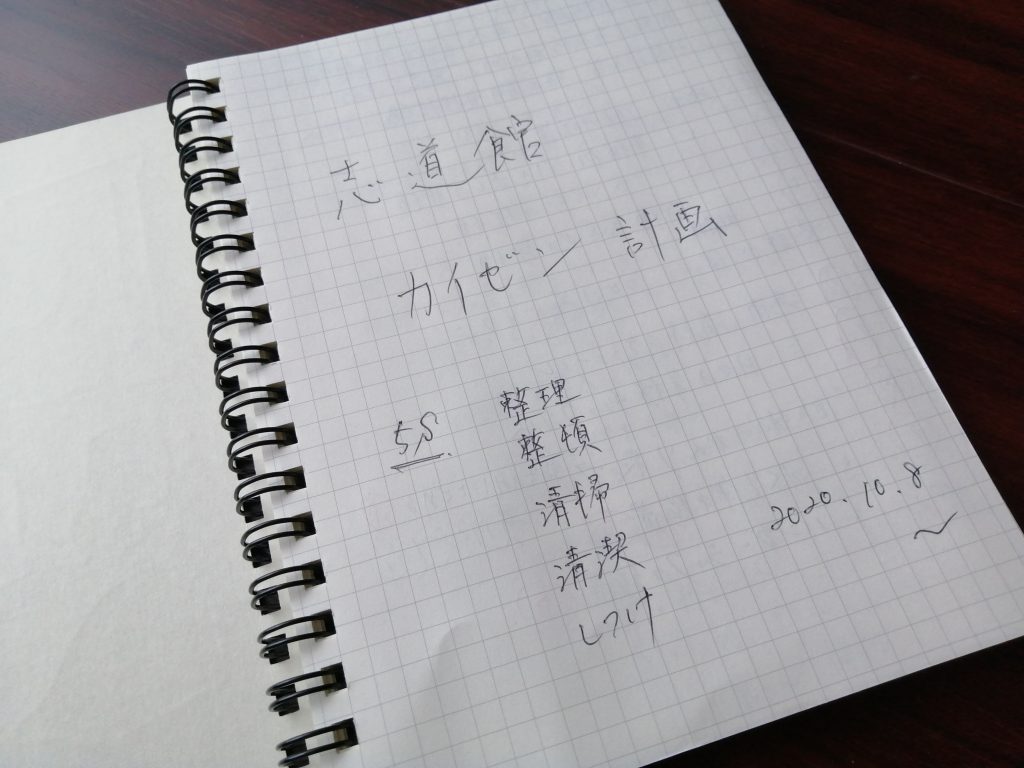 志道館
カイゼン 計画
5S 整理
整頓
清掃
清潔
しつけ
2020.10.8
〜